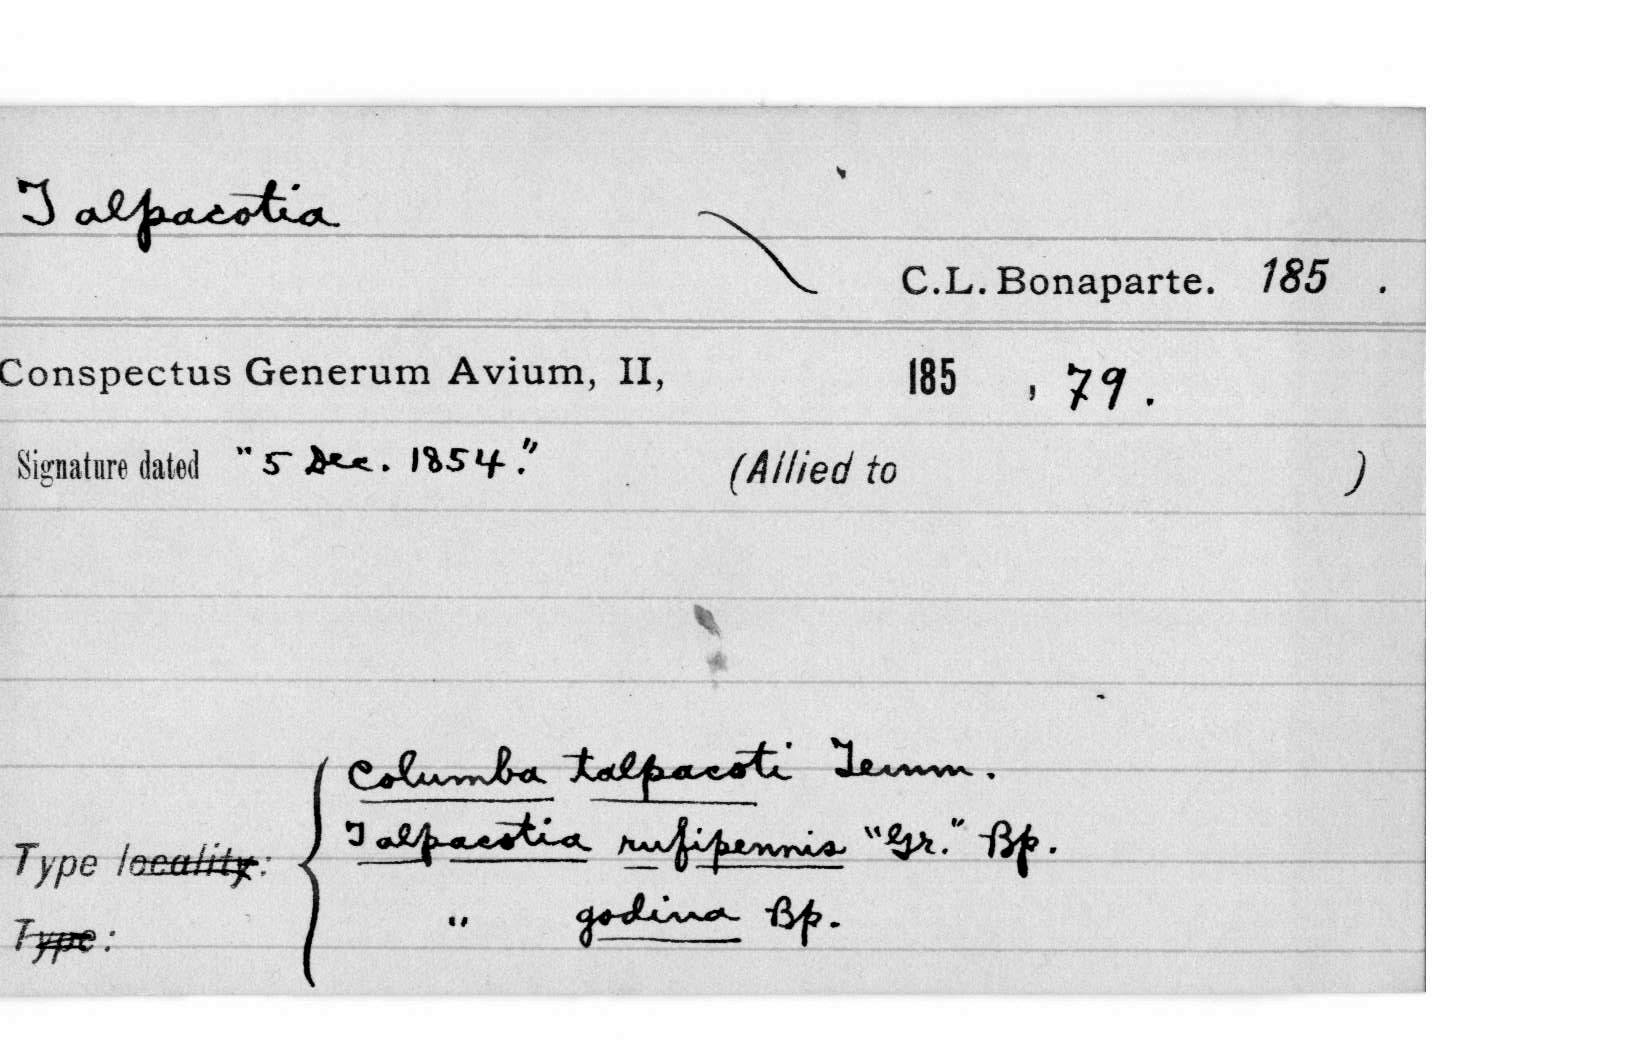 Talpacotia
C.L. Bonaparte. 185 .
Conspectus Generum Avium, II, 185 , 79.
Signature dated "5 Dec. 1854." (Allied to )
Columba talpacoti Temm.
Talpacotia rufipennis "Gr." Bp.
Type locality:
" godina Bp.
Type: